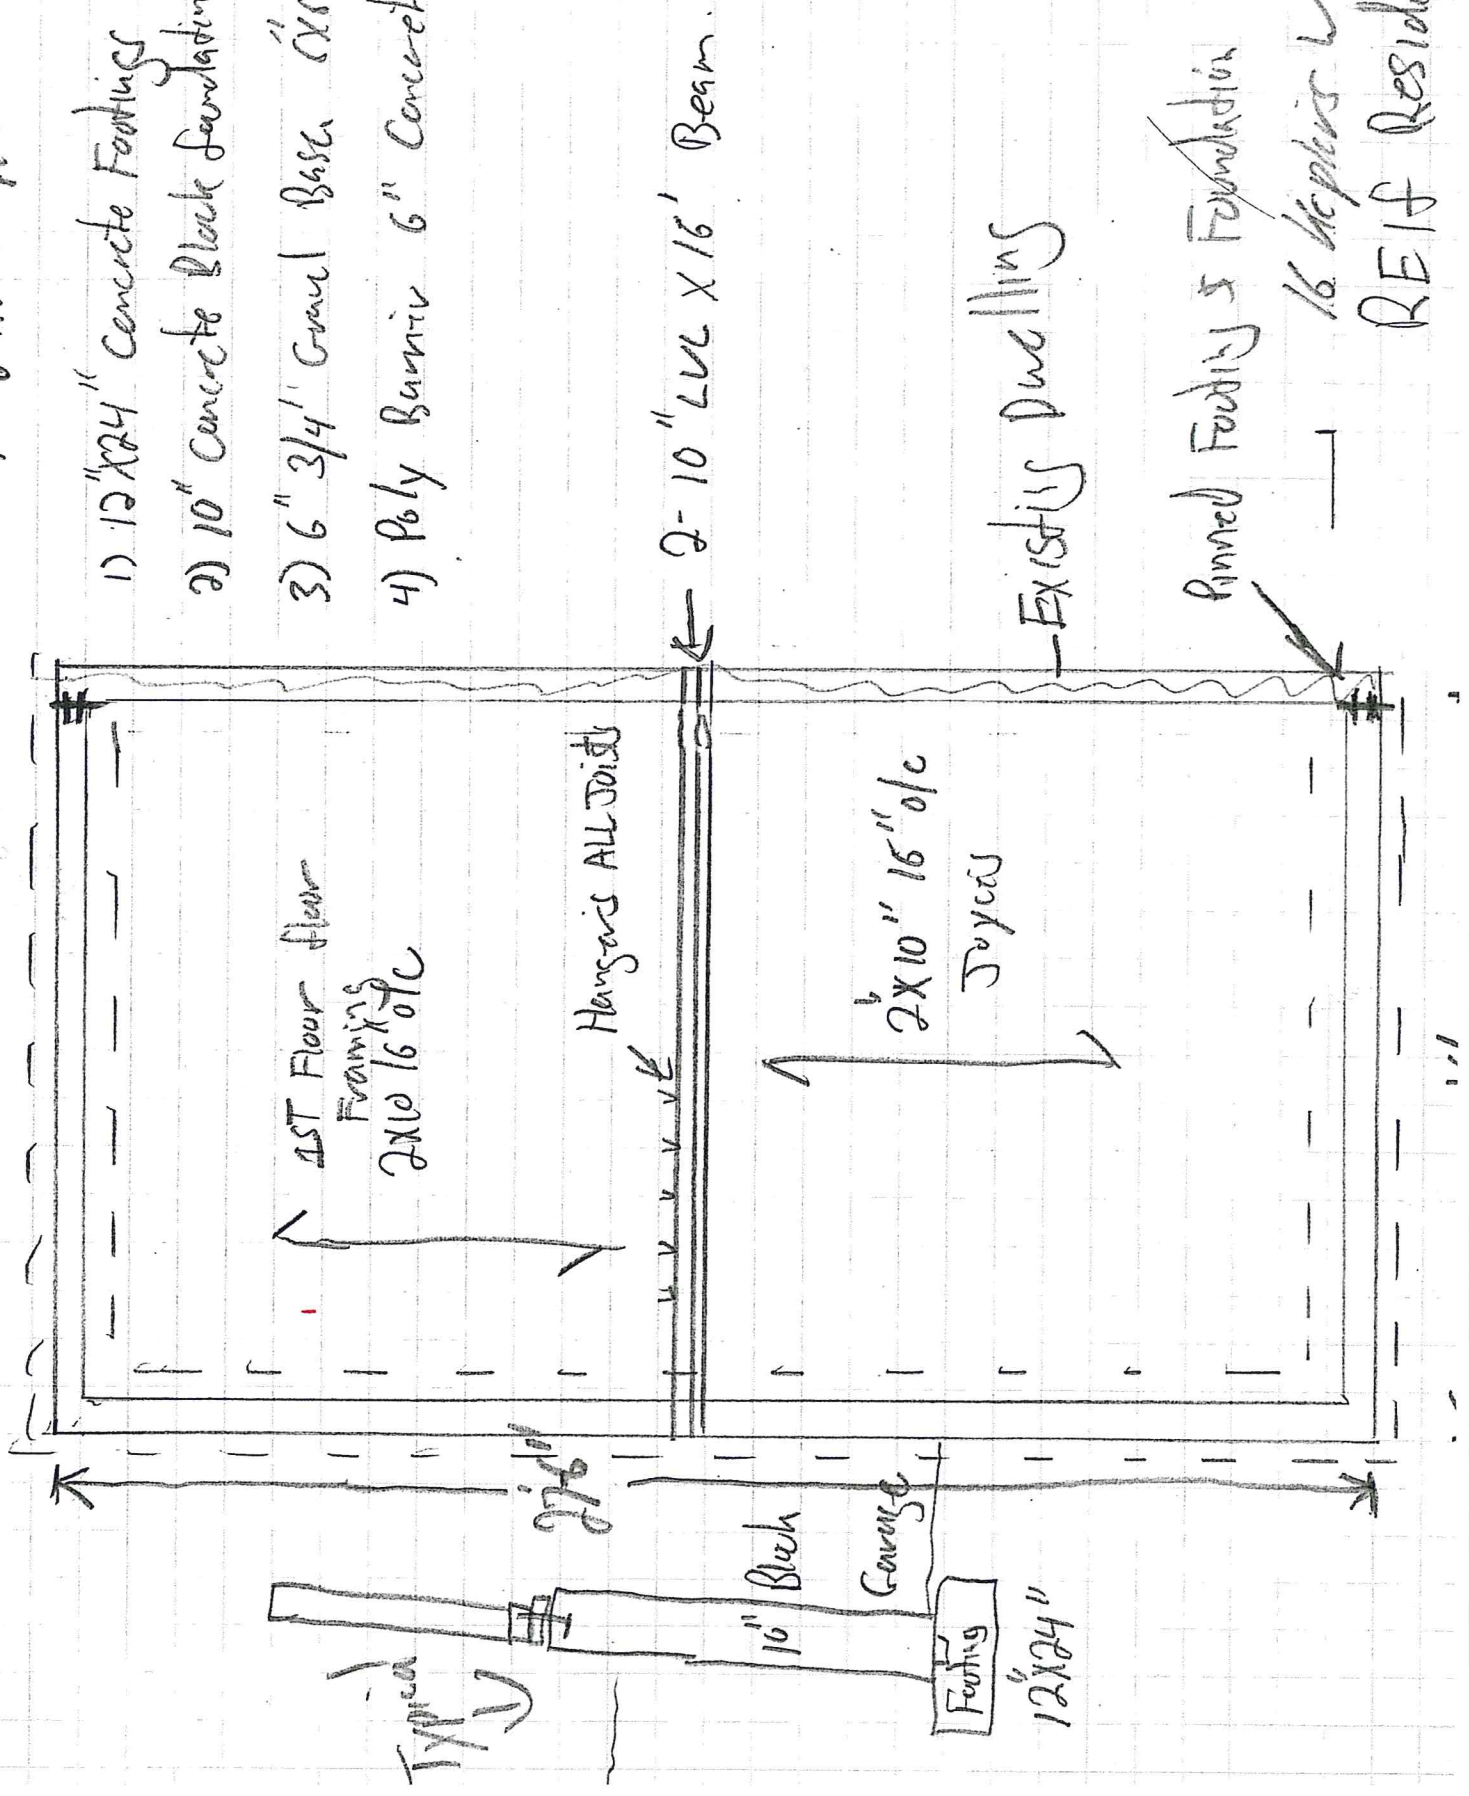 1) 12"X24" Concrete Footings
2) 10" Concrete Block foundation
3) 6" 3/4" Gravel Base
4) Poly Barrier 6" Concret
2- 10" LVL X 16' Beam.
Existing Dwelling
Pinned Footing & Foundation
16
REIf Resid
1ST Floor floor
Framing
2X10 16 o/c
Hangers ALL Joist
2"X10" 16" o/c
Joyces
27'6"
Typical
10" Block
Garage
Footing
12"X24"